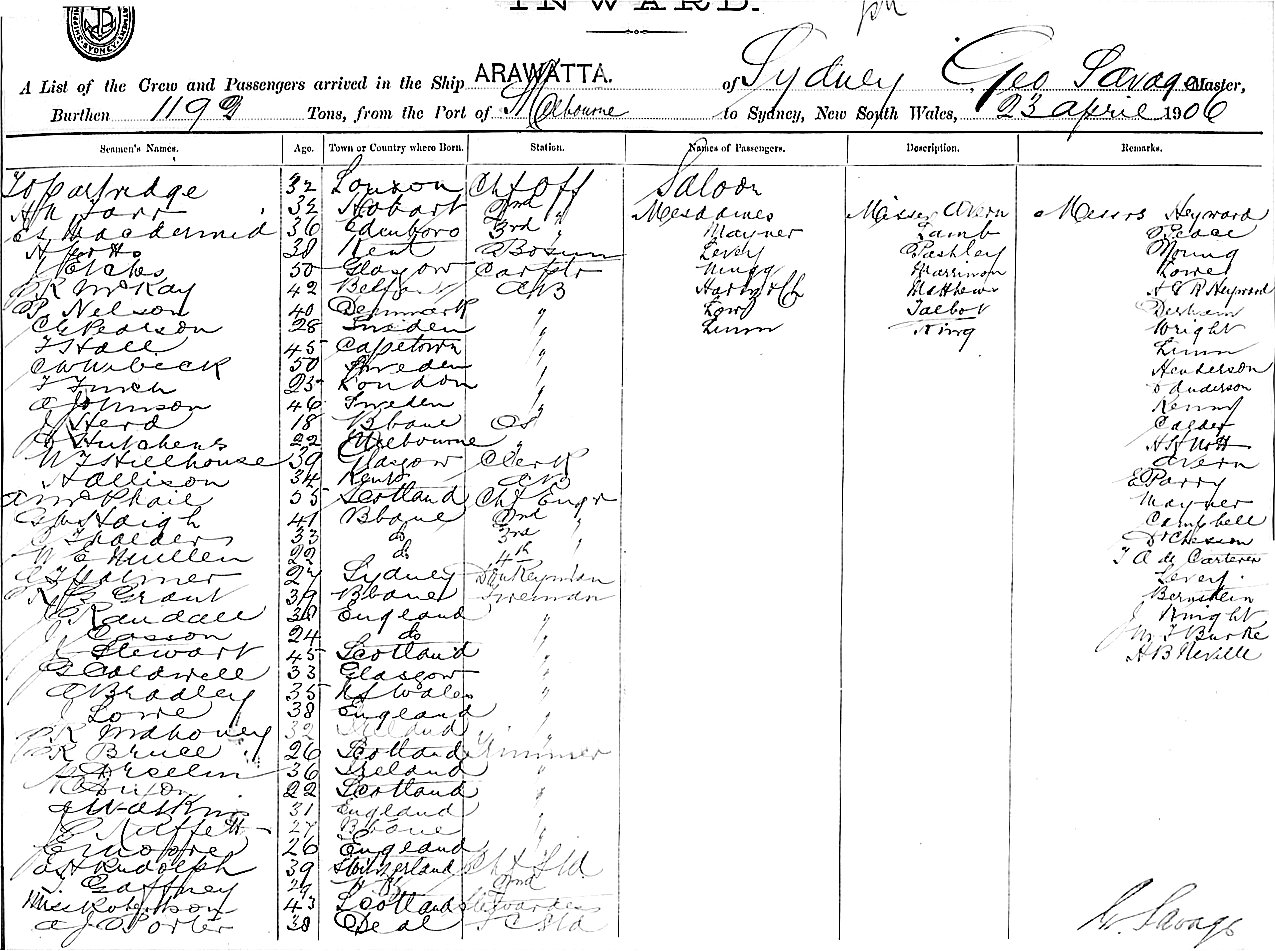 INWARD.
A List of the Crew and Passengers arrived in the Ship ARAWATTA. of Sydney Geo Savage Master,
Burthen 1192 Tons, from the Port of Melbourne to Sydney, New South Wales, 23 april 1906
Seamen's Names. Age. Town or Country where Born. Station. Names of Passengers. Description. Remarks.
32 London Chf Off Saloon
32 Hobart 2nd " Mesdames Misses Avern Messrs Heyward
36 Edinboro 3rd " Mayner Lamb Peace
38 Kent Bosun Levey Pashley Young
50 Glasgow Carptr Harrison Lowe
R McKay 42 Belfast AB Matthews A & R Heyward
P. Nelson 40 Denmark " Lowe Talbot Derham
C E Pearson 28 Sweden " Linn King Wright
T Hall 45 Capetown " Linn
50 Sweden " Henderson
T Finch 23 London " Anderson
A Johnson 46 Sweden " Kenny
J Herd 18 Bbane OS Calder
J Hutchens 22 Melbourne "
W T Stillhouse 39 Glasgow Clerk Avern
H Allison 34 Kent AB E Parry
A McPhail 55 Scotland Chf Engr Mayner
Haigh 41 Bbane 2nd " Campbell
33 do 3rd " Dr Chesson
W E Mullen 22 do 4th " T A de Carteren
Palmer 27 Sydney Donkeyman Levey
R G Grant 39 Bbane Fireman Bernstein
J Randall 38 England " J Knight
J Easson 24 do " M T Burke
J Stewart 45 Scotland " H B Neville
G Caldwell 33 Glasgow "
A Bradley 35 N S Wales "
J Lowe 38 England "
R Mahoney 32 Ireland "
R Bruce 26 Scotland Trimmer
36 Ireland "
22 Scotland "
J Watkins 31 England "
27 Bbane "
E Moore 26 England "
A H Rudolph 39 Switzerland Chf Std
T Gaffney 29 2nd "
Miss Robertson 43 Scotland Stewardess
A J Porter 38 Deal
G. Savage